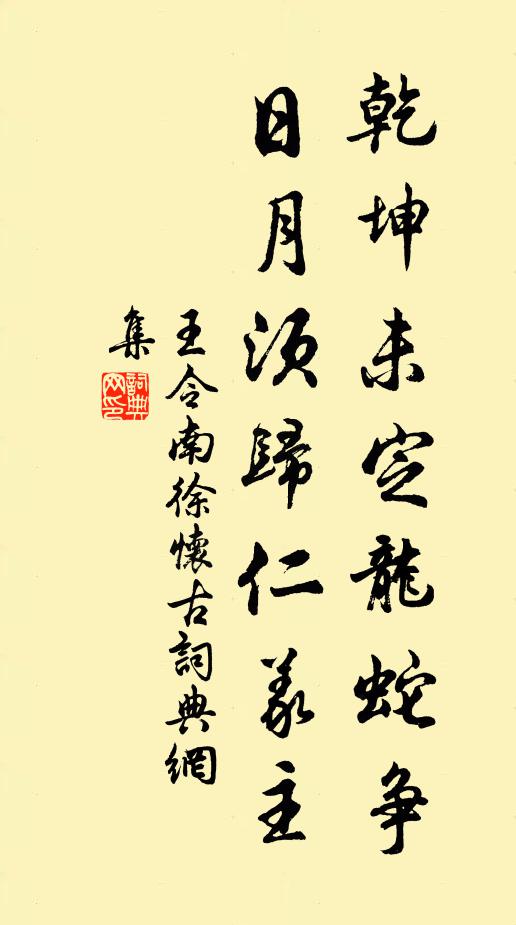 乾坤未定龍蛇争
日月須歸仁義主
王令南徐懷古詞典網
集
詞典網印